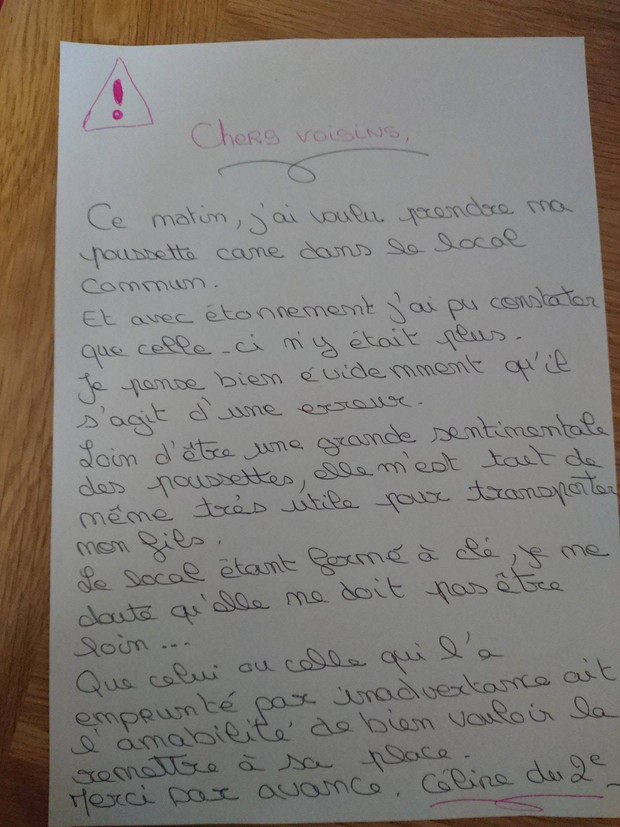 !
Chers voisins,
Ce matin, j'ai voulu prendre ma
poussette cane dans le local
commun.
Et avec étonnement j'ai pu constater
que celle-ci n'y était plus.
Je pense bien évidemment qu'il
s'agit d'une erreur.
Loin d'être une grande sentimentale
des poussettes, elle m'est tout de
même très utile pour transporter
mon fils.
Le local étant fermé à clé, je me
doute qu'elle ne doit pas être
loin...
Que celui ou celle qui l'a
emprunté par inadvertance ait
l'amabilité de bien vouloir la
remettre à sa place.
Merci par avance. Céline du 2e